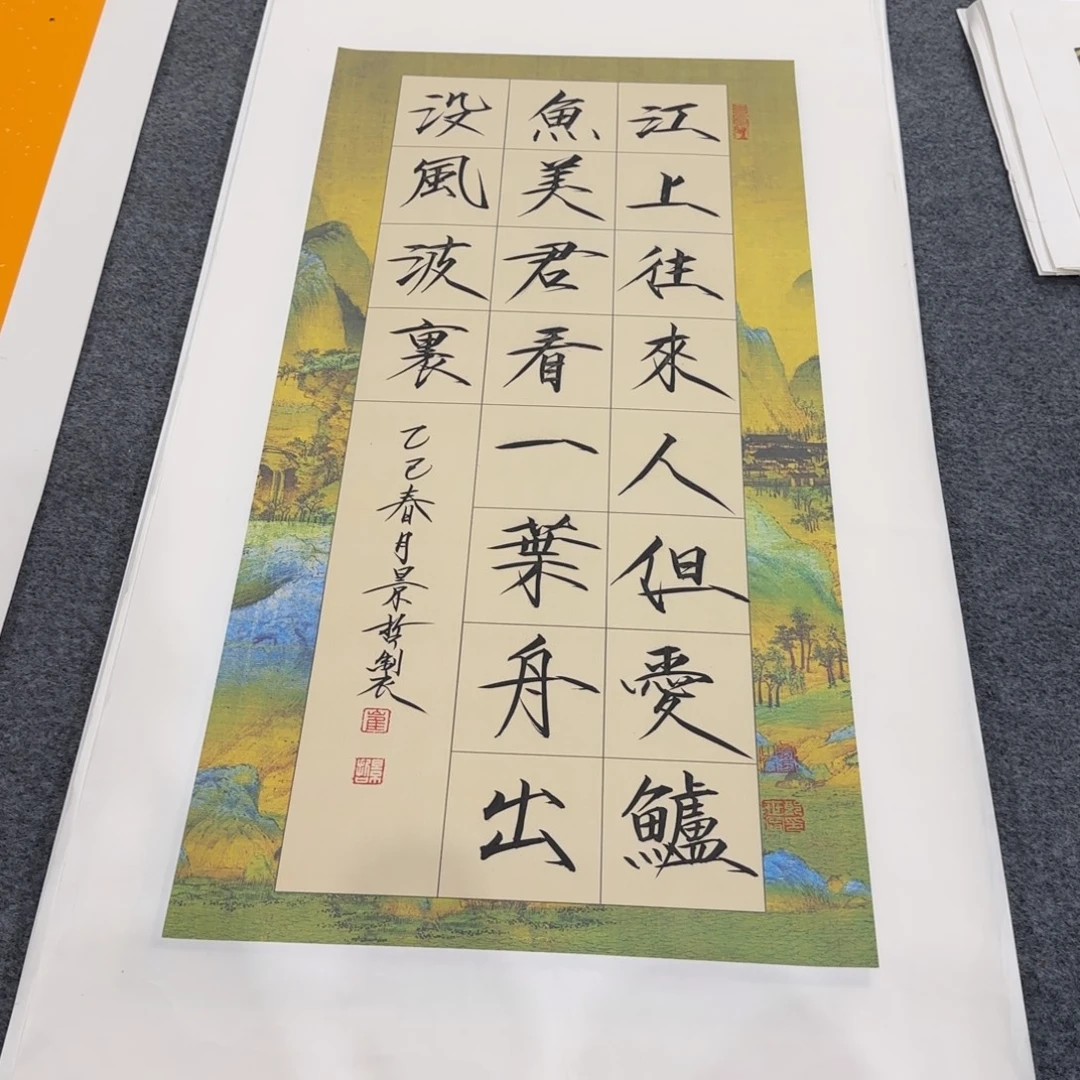 江上往來人但愛鱸
魚美君看一葉舟出
没風波裏
乙巳春月景哲製